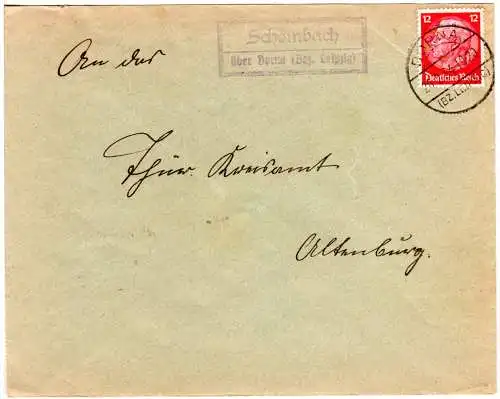 Schömbach
über Borna (Bez. Leipzig)
12 12
Deutsches Reich
BORNA
(BZ. LEIPZIG)
An das
Thür. Kreisamt
Altenburg.